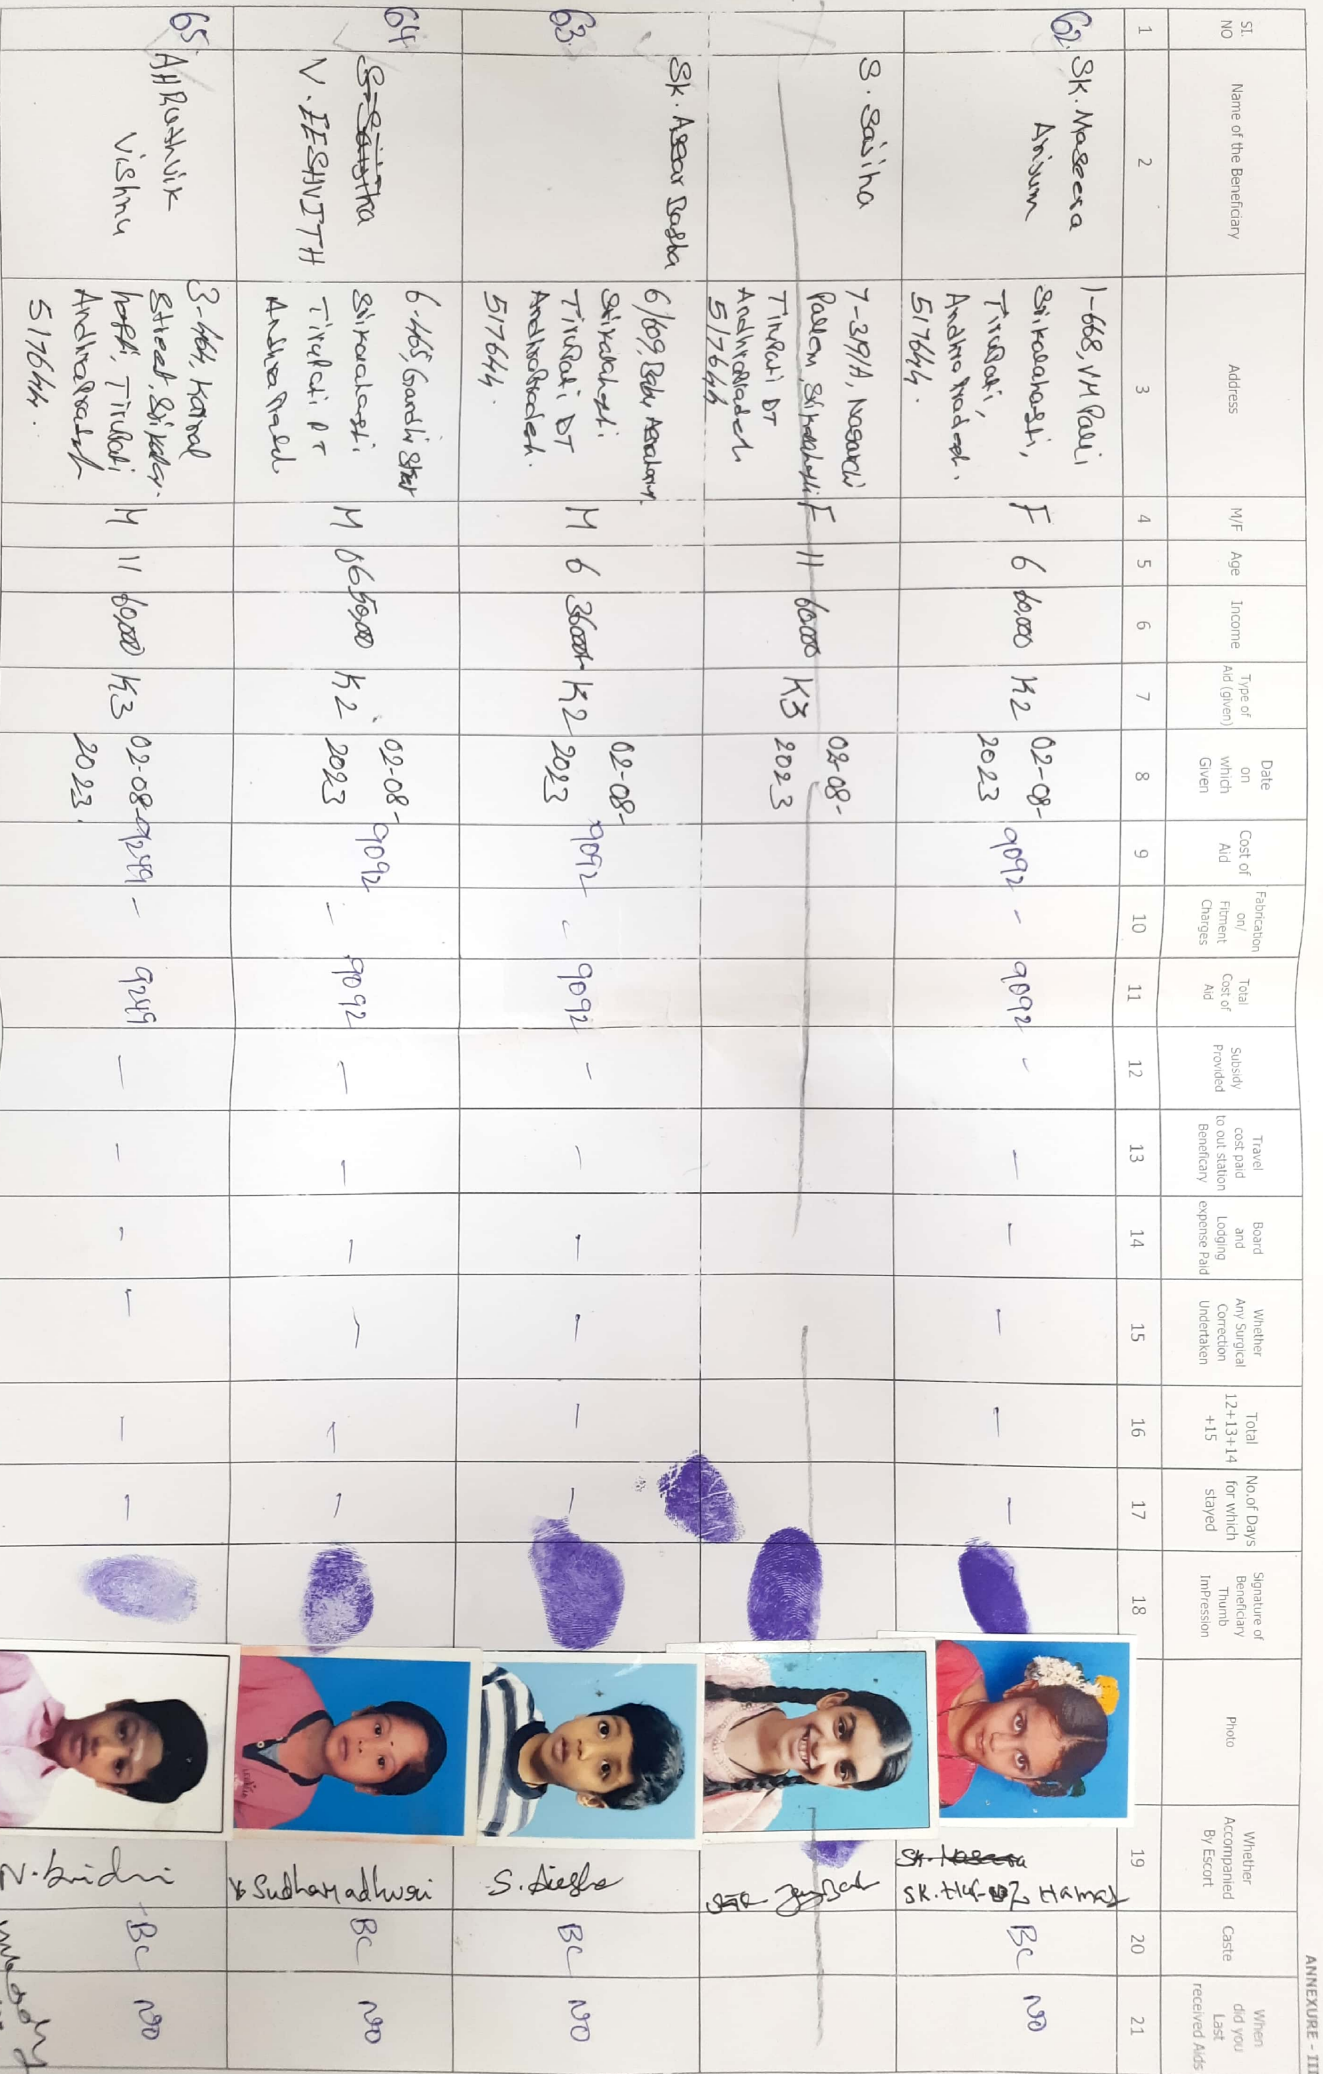 ANNEXURE - III
SI. NO
Name of the Beneficiary
Address
M/F
Age
Income
Type of Aid (given)
Date on which Given
Cost of Aid
Fabrication on/ Fitment Charges
Total Cost of Aid
Subsidy Provided
Travel cost paid to out station Beneficary
Board and Lodging expense Paid
Whether Any Surgical Correction Undertaken
Total 12+13+14 +15
No.of Days for which stayed
Signature of Beneficiary Thumb ImPression
Photo
Whether Accompanied By Escort
Caste
When did you Last received Aids
1 2 3 4 5 6 7 8 9 10 11 12 13 14 15 16 17 18 19 20 21
62. SK. Maseera
Anisum
1-668, VM Palli
Srikalahasti,
Tirupati,
Andhra Pradesh.
517644.
F 6 60,000 K2
02-08-
2023
9092 - 9092 - - - - - -
SK. Haf
Hamad
BC NO
S. Sajiha
7-319/A,
Pallem, Srikalahasti
Tirupati DT
Andhra Pradesh
517644
F 11 60,000 K3
02-08-
2023
63. SK. Asrar Basha
6/609,
Srikalahasti
Tirupati DT
Andhra Pradesh.
517644.
M 6 36000 K2
02-08-
2023
9092 - 9092 - - - - - -
S. Aiesha
BC NO
64
V. EESHVITH
6-465, Gandhi Street
Srikalahasti
Tirupati DT
Andhra Pradesh
M 06 50,000 K2
02-08-
2023
9092 - 9092 - - - - - -
V Sudha Madhuri
BC NO
65.
Vishnu
3-464,
Street, Srikala-
hasti, Tirupati
Andhra Pradesh
517644.
M 11 60,000 K3
02-08-
2023.
9249 - 9249 - - - - - -
BC NO